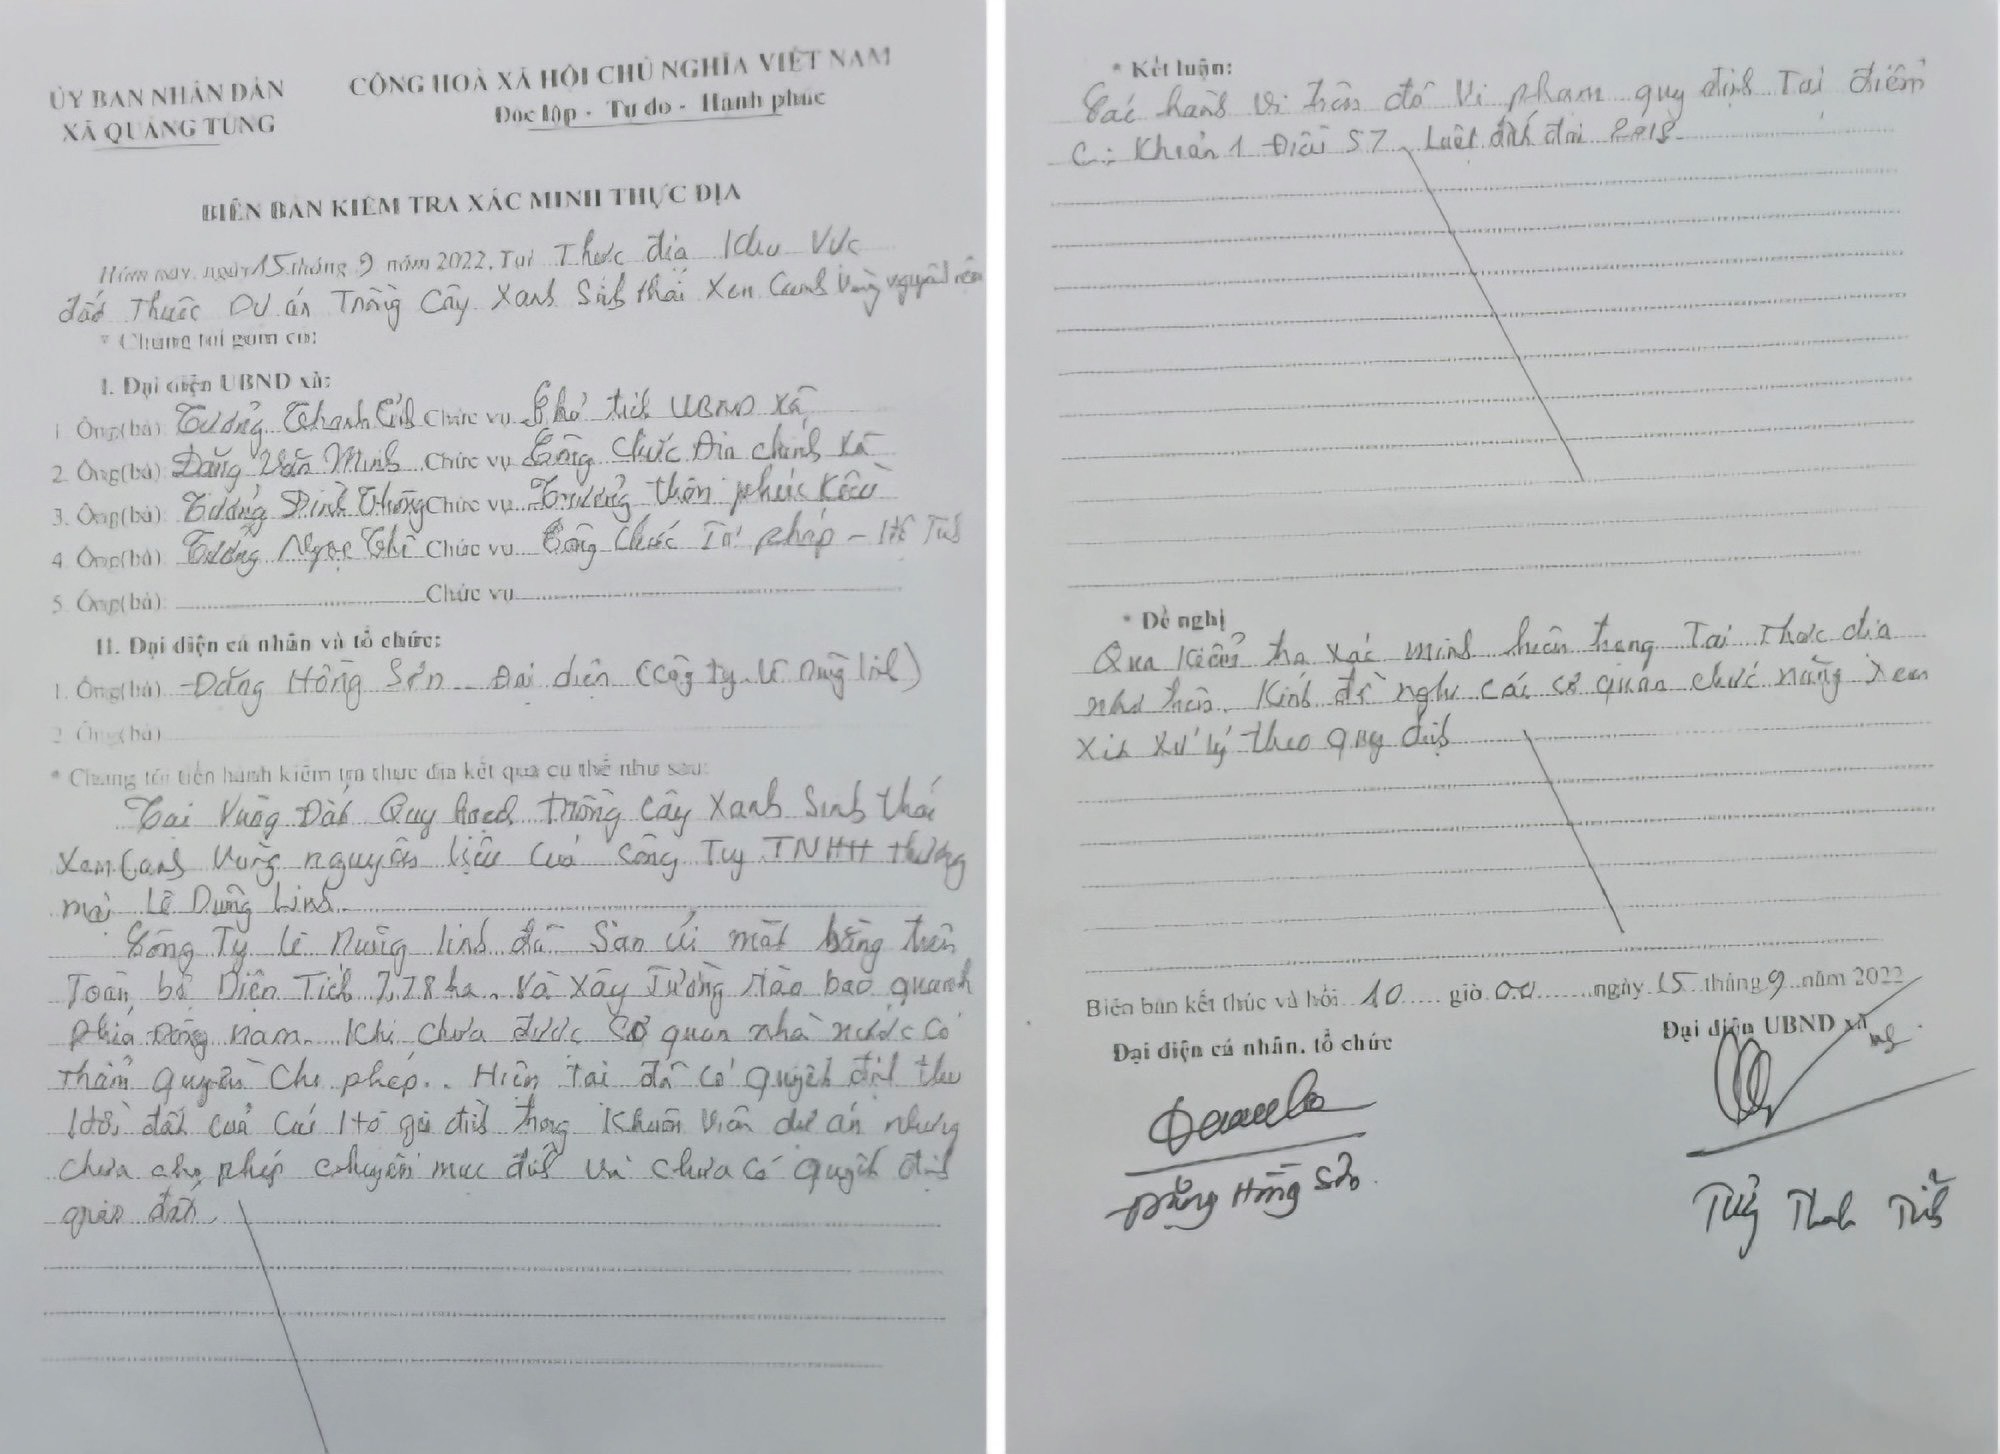 ỦY BAN NHÂN DÂN
XÃ QUẢNG TÙNG
CỘNG HOÀ XÃ HỘI CHỦ NGHĨA VIỆT NAM
Độc lập - Tự do - Hạnh phúc
BIÊN BẢN KIỂM TRA XÁC MINH THỰC ĐỊA
Hôm nay, ngày 15 tháng 9 năm 2022, Tại Thực địa Khu Vực
đất Thuộc Dự án Trồng Cây Xanh Sinh thái Xen Canh Vùng nguyên liệu
* Chúng tôi gồm có:
I. Đại diện UBND xã:
1. Ông(bà) Tưởng Thanh Chức vụ Phó tịch UBND Xã
2. Ông(bà) Đặng Văn Minh Chức vụ Công Chức Địa chính Xã
3. Ông(bà) Tưởng Đình Thông Chức vụ Trưởng thôn phúc Kiều
4. Ông(bà) Tưởng Ngọc Thi Chức vụ Công Chức Tư pháp - Hộ Tịch
5. Ông(bà): Chức vụ
II. Đại diện cá nhân và tổ chức:
1. Ông(bà) Đặng Hồng Sơn Đại diện (Công ty Lê Dũng linh)
2. Ông(bà)
* Chúng tôi tiến hành kiểm tra thực địa kết quả cụ thể như sau:
Tại Vùng Đất Quy hoạch trồng Cây Xanh Sinh thái
Xen Canh Vùng nguyên liệu Của Công Ty TNHH thương
mại Lê Dũng Linh.
Công Ty Lê Dũng linh đã San Ủi mặt bằng trên
Toàn bộ Diện Tích 7,78 ha. Và Xây Tường rào bao quanh
phía Đông nam. Khi chưa được Cơ quan nhà nước Có
Thẩm quyền Cho phép. Hiện Tại đã có quyết định thu
Hồi đất của Các Hộ gia đình trong Khuôn Viên dự án nhưng
chưa cho phép chuyển mục đích và chưa có quyết định
giao đất.
* Kết luận:
Các hành vi trên đã Vi phạm quy định Tại điểm
C; Khoản 1 Điều 57 Luật đất đai 2013
* Đề nghị
Qua Kiểm tra Xác minh hiện trạng Tại Thực địa
như trên. Kính đề nghị các cơ quan chức năng Xem
Xét Xử lý theo quy định
Biên bản kết thúc và hồi 10 giờ 00 ngày 15 tháng 9 năm 2022
Đại diện cá nhân, tổ chức
Đại diện UBND xã
Đặng Hồng Sơn